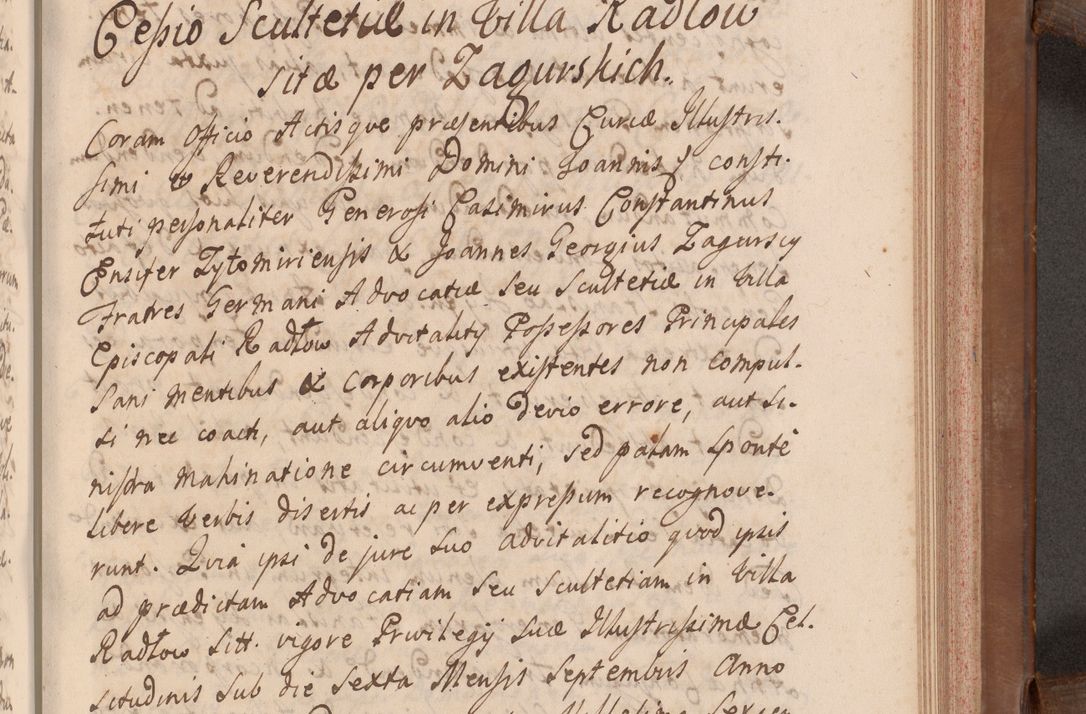 Cessio Scultetiæ in Villa Radłow
sitæ per Zagurskich.
Coram Officio Actisque præsentibus Curiæ Illustris.
simi et Reverendissimi Domini Joannis consti.
tuti personaliter Generosi Casimirus Constantinus
Ensifer Zytomiriensis & Joannes Georgius Zagurscy
Fratres Germani Advocatiæ seu Scultetiæ in Villa
Episcopali Radłow Advitalitij Possessores Principales
Sani mentibus & corporibus existentes non compul.
si nec coacti, aut aliquo alio devio errore, aut si.
nistra mahinatione circumventi, sed palam sponte
libere verbis disertis ac per expressum recognove.
runt. Quia ipsi de jure suo advitalitio quod ipsis
ad prædictam Advocatiam seu Scultetiam in Villa
Radłow sitt. vigore Privilegij suæ Illustrissimæ Cel.
situdinis sub die sexta Mensis Septembris Anno